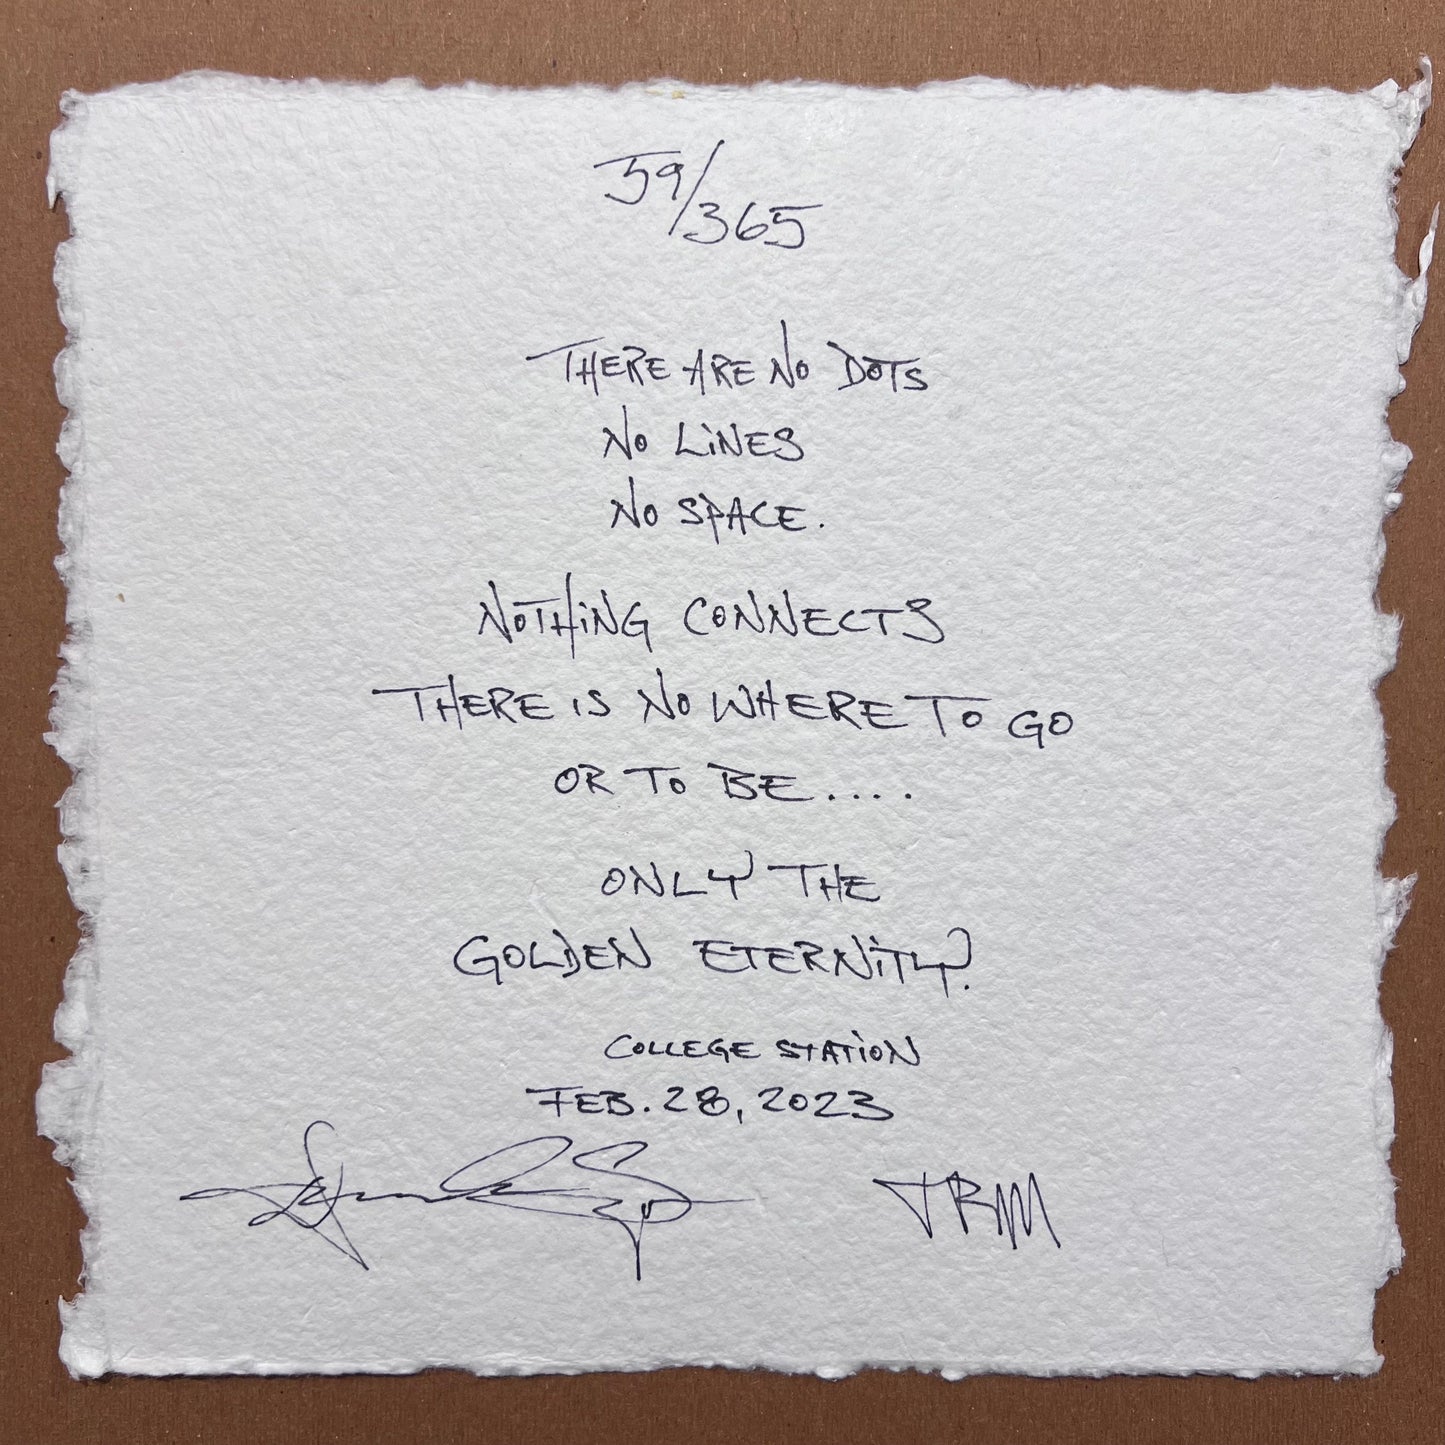 59/365
THERE ARE NO DOTS
NO LINES
NO SPACE.
NOTHING CONNECTS
THERE IS NO WHERE TO GO
OR TO BE....
ONLY THE
GOLDEN ETERNITY?
COLLEGE STATION
FEB. 28, 2023
JRM